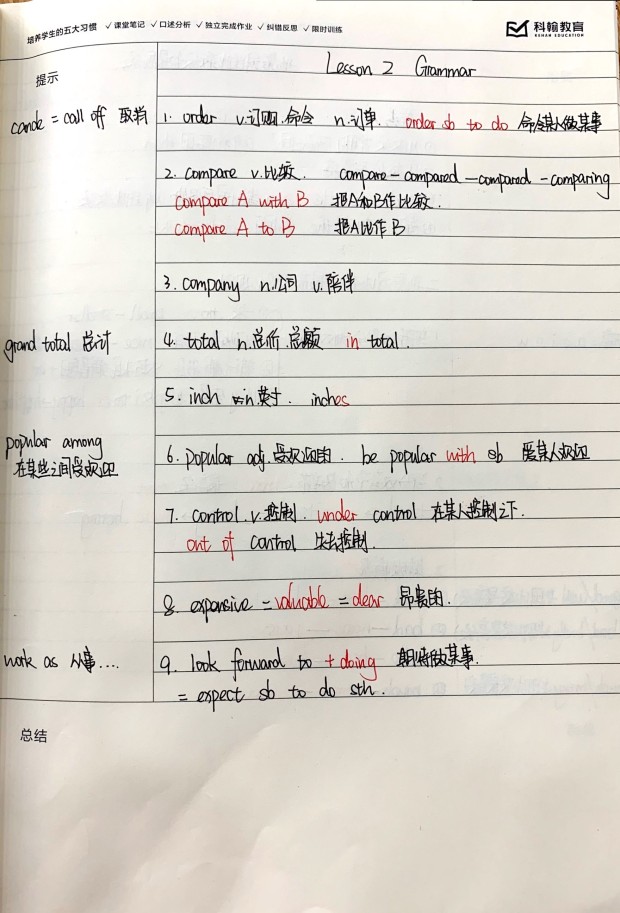 培养学生的五大习惯 ✓课堂笔记 ✓口述分析 ✓独立完成作业 ✓纠错反思 ✓限时训练
科翰教育
KEHAN EDUCATION
提示
Lesson 2 Grammar
cancle = call off 取消
1. order v.订购.命令 n.订单. order sb to do 命令某人做某事
2. compare v.比较. compare - compared - compared - comparing
compare A with B 把A和B作比较.
compare A to B 把A比作B
3. company n.公司 v.陪伴
grand total 总计
4. total n.总价.总额 in total.
5. inch n.英寸. inches
popular among
在某些之间受欢迎
6. popular adj.受欢迎的. be popular with sb 受某人欢迎
7. control.v.控制. under control 在某人控制之下.
out of control 失去控制.
8. expensive = valuable = dear 昂贵的.
work as 从事....
9. look forward to + doing 期待做某事.
= expect sb to do sth.
总结